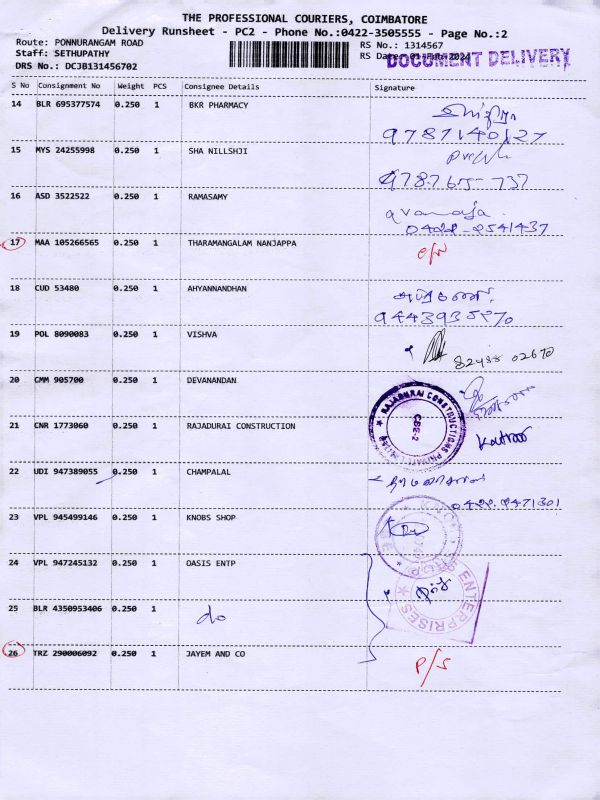 THE PROFESSIONAL COURIERS, COIMBATORE
Delivery Runsheet - PC2 - Phone No.:0422-3505555 - Page No.:2
Route: PONNURANGAM ROAD
Staff: SETHUPATHY
DRS No.: DCJB131456702
RS No.: 1314567
RS Date
DOCUMENT DELIVERY
S No Consignment No Weight PCS Consignee Details Signature
14 BLR 695377574 0.250 1 BKR PHARMACY
9787140127
15 MYS 24255998 0.250 1 SHA NILLSHJI
97876 737
16 ASD 3522522 0.250 1 RAMASAMY
0422-2541437
17 MAA 105266565 0.250 1 THARAMANGALAM NANJAPPA
18 CUD 53480 0.250 1 AHYANNANDHAN
19 POL 8090083 0.250 1 VISHVA
82488 02670
20 CMM 905700 0.250 1 DEVANANDAN
21 CNR 1773060 0.250 1 RAJADURAI CONSTRUCTION
RAJADURAI CONSTRUCTIONS PRIVATE LIMITED
CBE-2
22 UDI 947389055 0.250 1 CHAMPALAL
0422.2471301
23 VPL 945499146 0.250 1 KNOBS SHOP
24 VPL 947245132 0.250 1 OASIS ENTP
ENTERPRISES
25 BLR 4350953406 0.250 1 do
26 TRZ 290006092 0.250 1 JAYEM AND CO
P/S